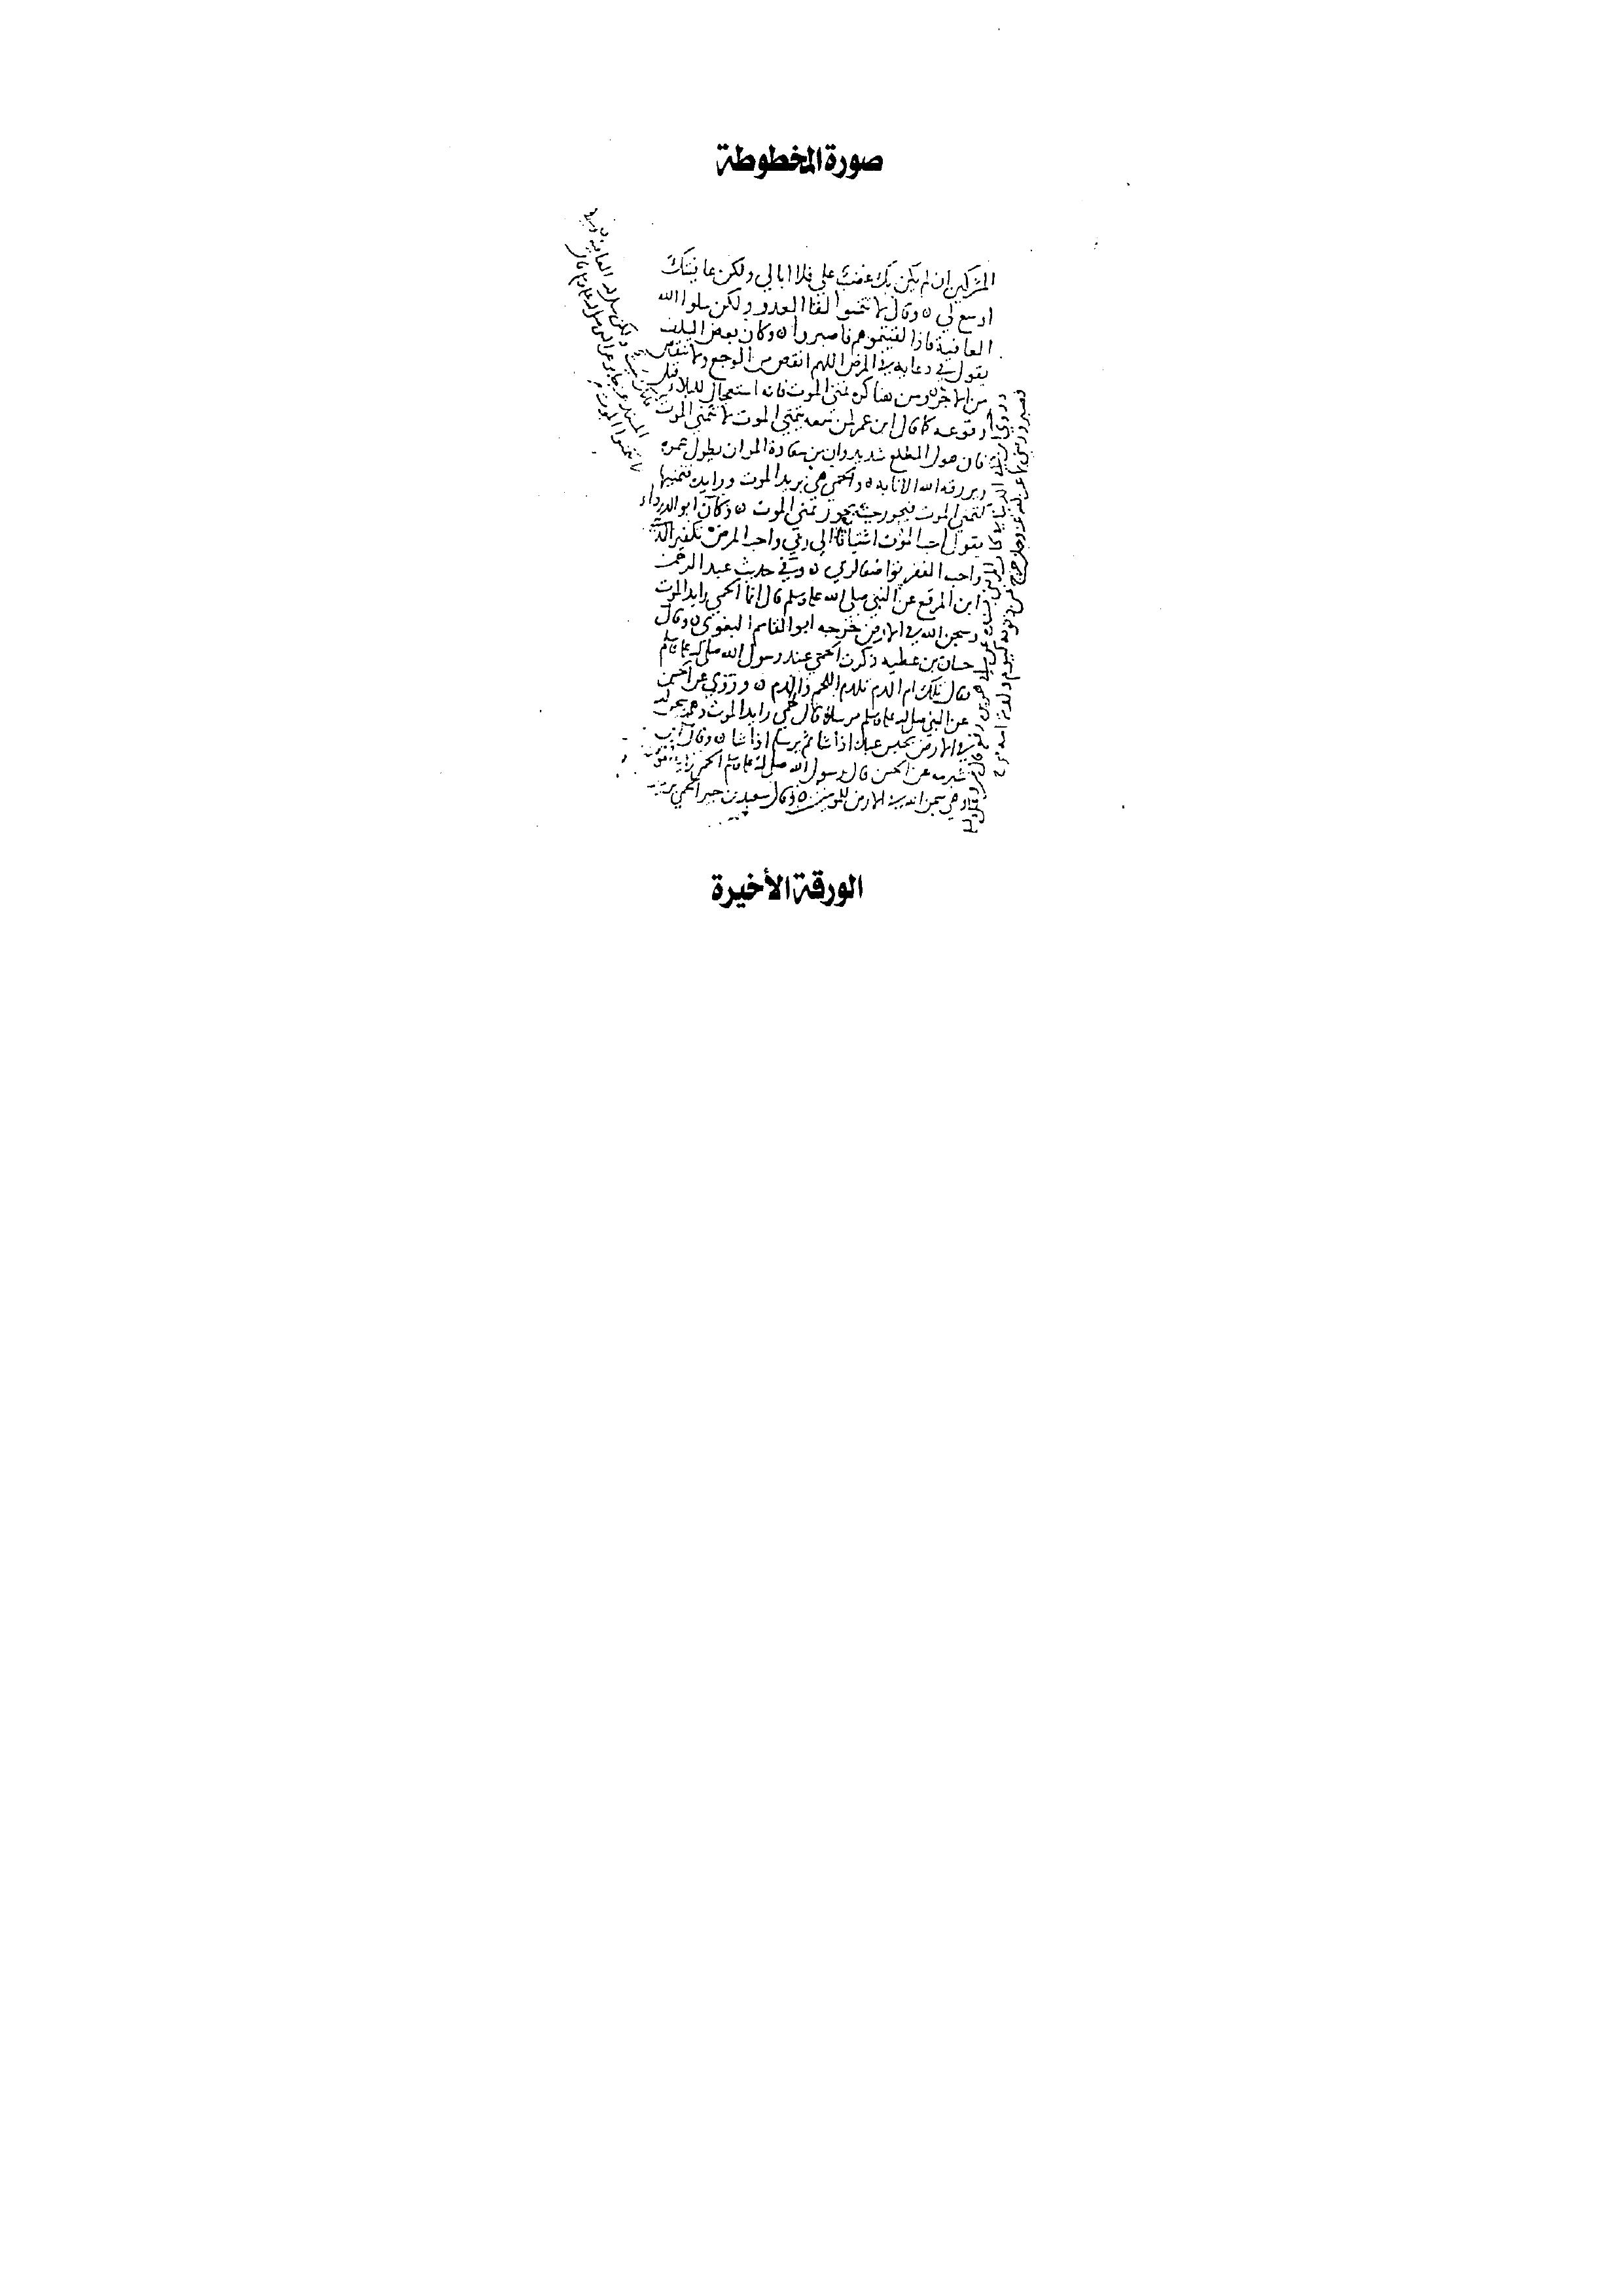 صورة المخطوطة
المشركين ان لم يكن بك غضب علي فلا ابالي ولكن عافيتك
اوسع لي ه وقال لا تتمنوا لقا العدو ولكن سلوا الله
العافية فاذا لقيتموهم فاصبروا ه وكان بعض السلف
يقول في دعايه في المرض اللهم انقص من الوجع ولا تنقص
من الاجر ه ومن هنا كره تمني الموت فانه استعجال للبلاء قبل
وقوعه كما قال ابن عمر لمن سمعه يتمنى الموت لا تتمنى الموت
فان هول المطلع شديد وان من سعادة المرا ان يطول عمره
ويرزقه الله الانابه ه والحمى هي بريد الموت ورايده فتمنيها
كتمني الموت فيجوز حيث يجوز تمني الموت ه وكان ابو الدرداء
يقول احب الموت اشتياقا الى ربي واحب المرض تكفيرا
واحب الفقر تواضعا لربي ه وفي حديث عبد الرحمن
ابن المرقع عن النبي صلى الله عليه وسلم قال انما الحمى رايد الموت
وسجن الله في الارض خرجه ابو القاسم البغوي ه وقال
حسان بن عطيه ذكرت الحمى عند رسول الله صلى الله عليه وسلم
فقال تلك ام الدم تلدم اللحم والدم ه وروي عن الحسن
عن النبي صلى الله عليه وسلم مرسلا قال الحمى رايد الموت وهي سجن الله
في الارض يحبس عبده اذا شا ثم يرسله اذا شا ه وقال ابن
شبرمه عن الحسن قال رسول الله صلى الله عليه وسلم الحمى رايد الموت
وهي سجن الله في الارض للمومنين ه وقال سعيد بن جبير الحمى بريد
ولكن سلوا الله العافية
المسند عن جابر عن النبي صلى الله عليه وسلم قال
لا تتمنوا الموت
الورقة الأخيرة